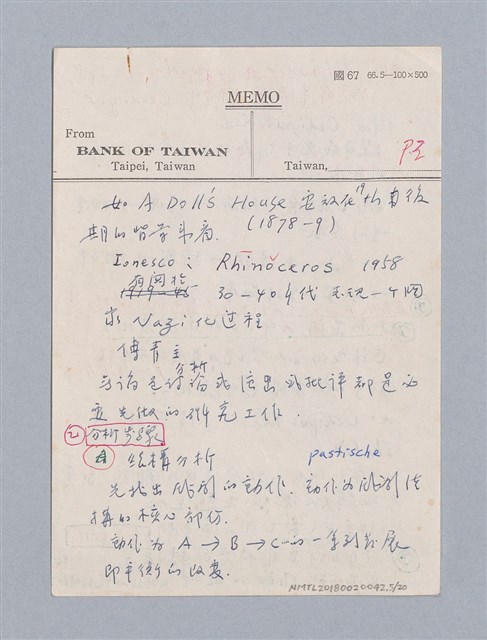 國67 66.5—100×500
MEMO
From
BANK OF TAIWAN
Taipei, Taiwan
Taiwan,
P5
如 A Doll's House 應放在 19th 末後
期的 (1878-9)
Ionesco: Rhinoceros 1958
1919-45 30-40年代 一个
Nazi 化过程
傅青主
分析
无論是討論或演出或批评都是必
要先做的研究工作.
② 分析步驟
A 結構分析 pastische
先找出戲劇的動作. 動作为戲劇结
構的核心部份.
動作为 A → B → C…的一系列發展
即平衡的改变.
NMTL20180020042.5/20